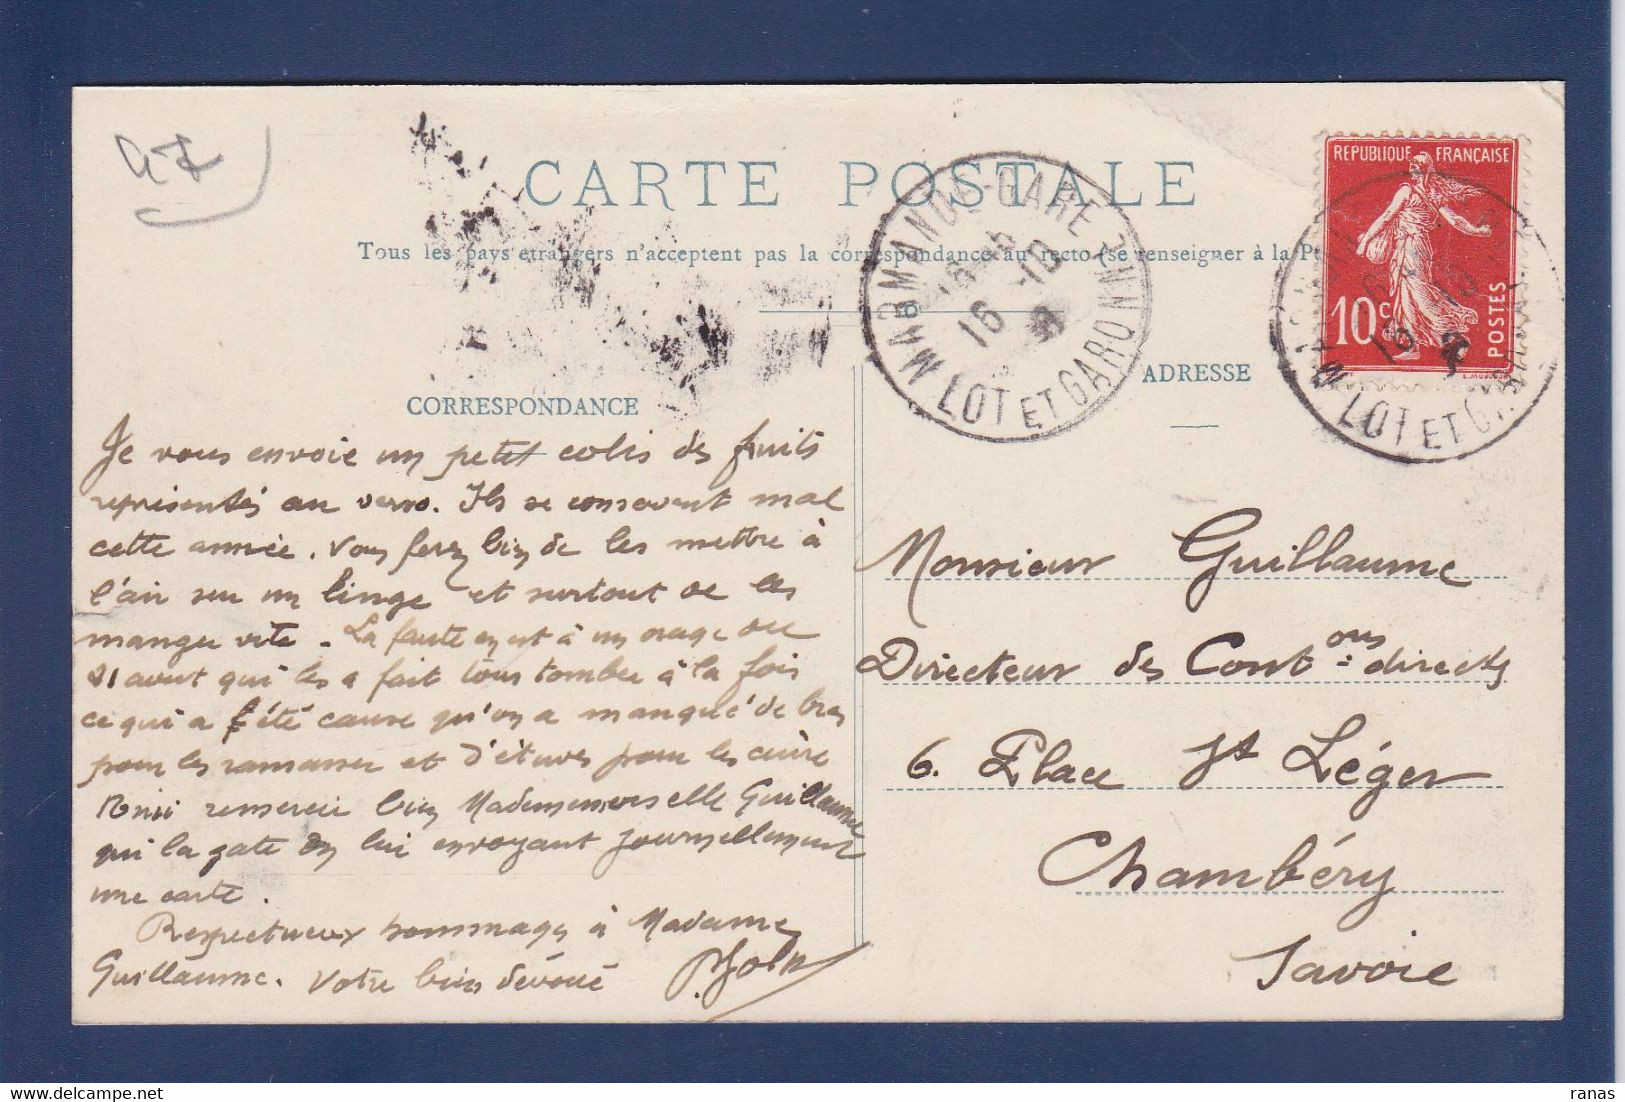 47
CARTE POSTALE
Tous les pays étrangers n'acceptent pas la correspondance au recto (se renseigner à la P
MARMANDE-GARE
LOT ET GARONNE
16 -10
REPUBLIQUE FRANÇAISE
10c
POSTES
LOT ET GA
CORRESPONDANCE
ADRESSE
Je vous envoie un petit colis de fruits
représentés au verso. Ils se conservent mal
cette année. Vous ferez bien de les mettre à
l'air sur un linge et surtout de les
manger vite. La faute en est à un orage du
31 aout qui les a fait tous tomber à la fois
ce qui a été cause qu'on a manqué de bras
pour les ramasser et d'étuves pour les cuire
remercie bien Mademoiselle Guillaume
qui la gate en lui envoyant journellement
une carte.
Respectueux hommages à Madame
Guillaume. Votre bien dévoué
Monsieur Guillaume
Directeur des Cont ons directes
6. Place St Léger
Chambéry
Savoie
ranas